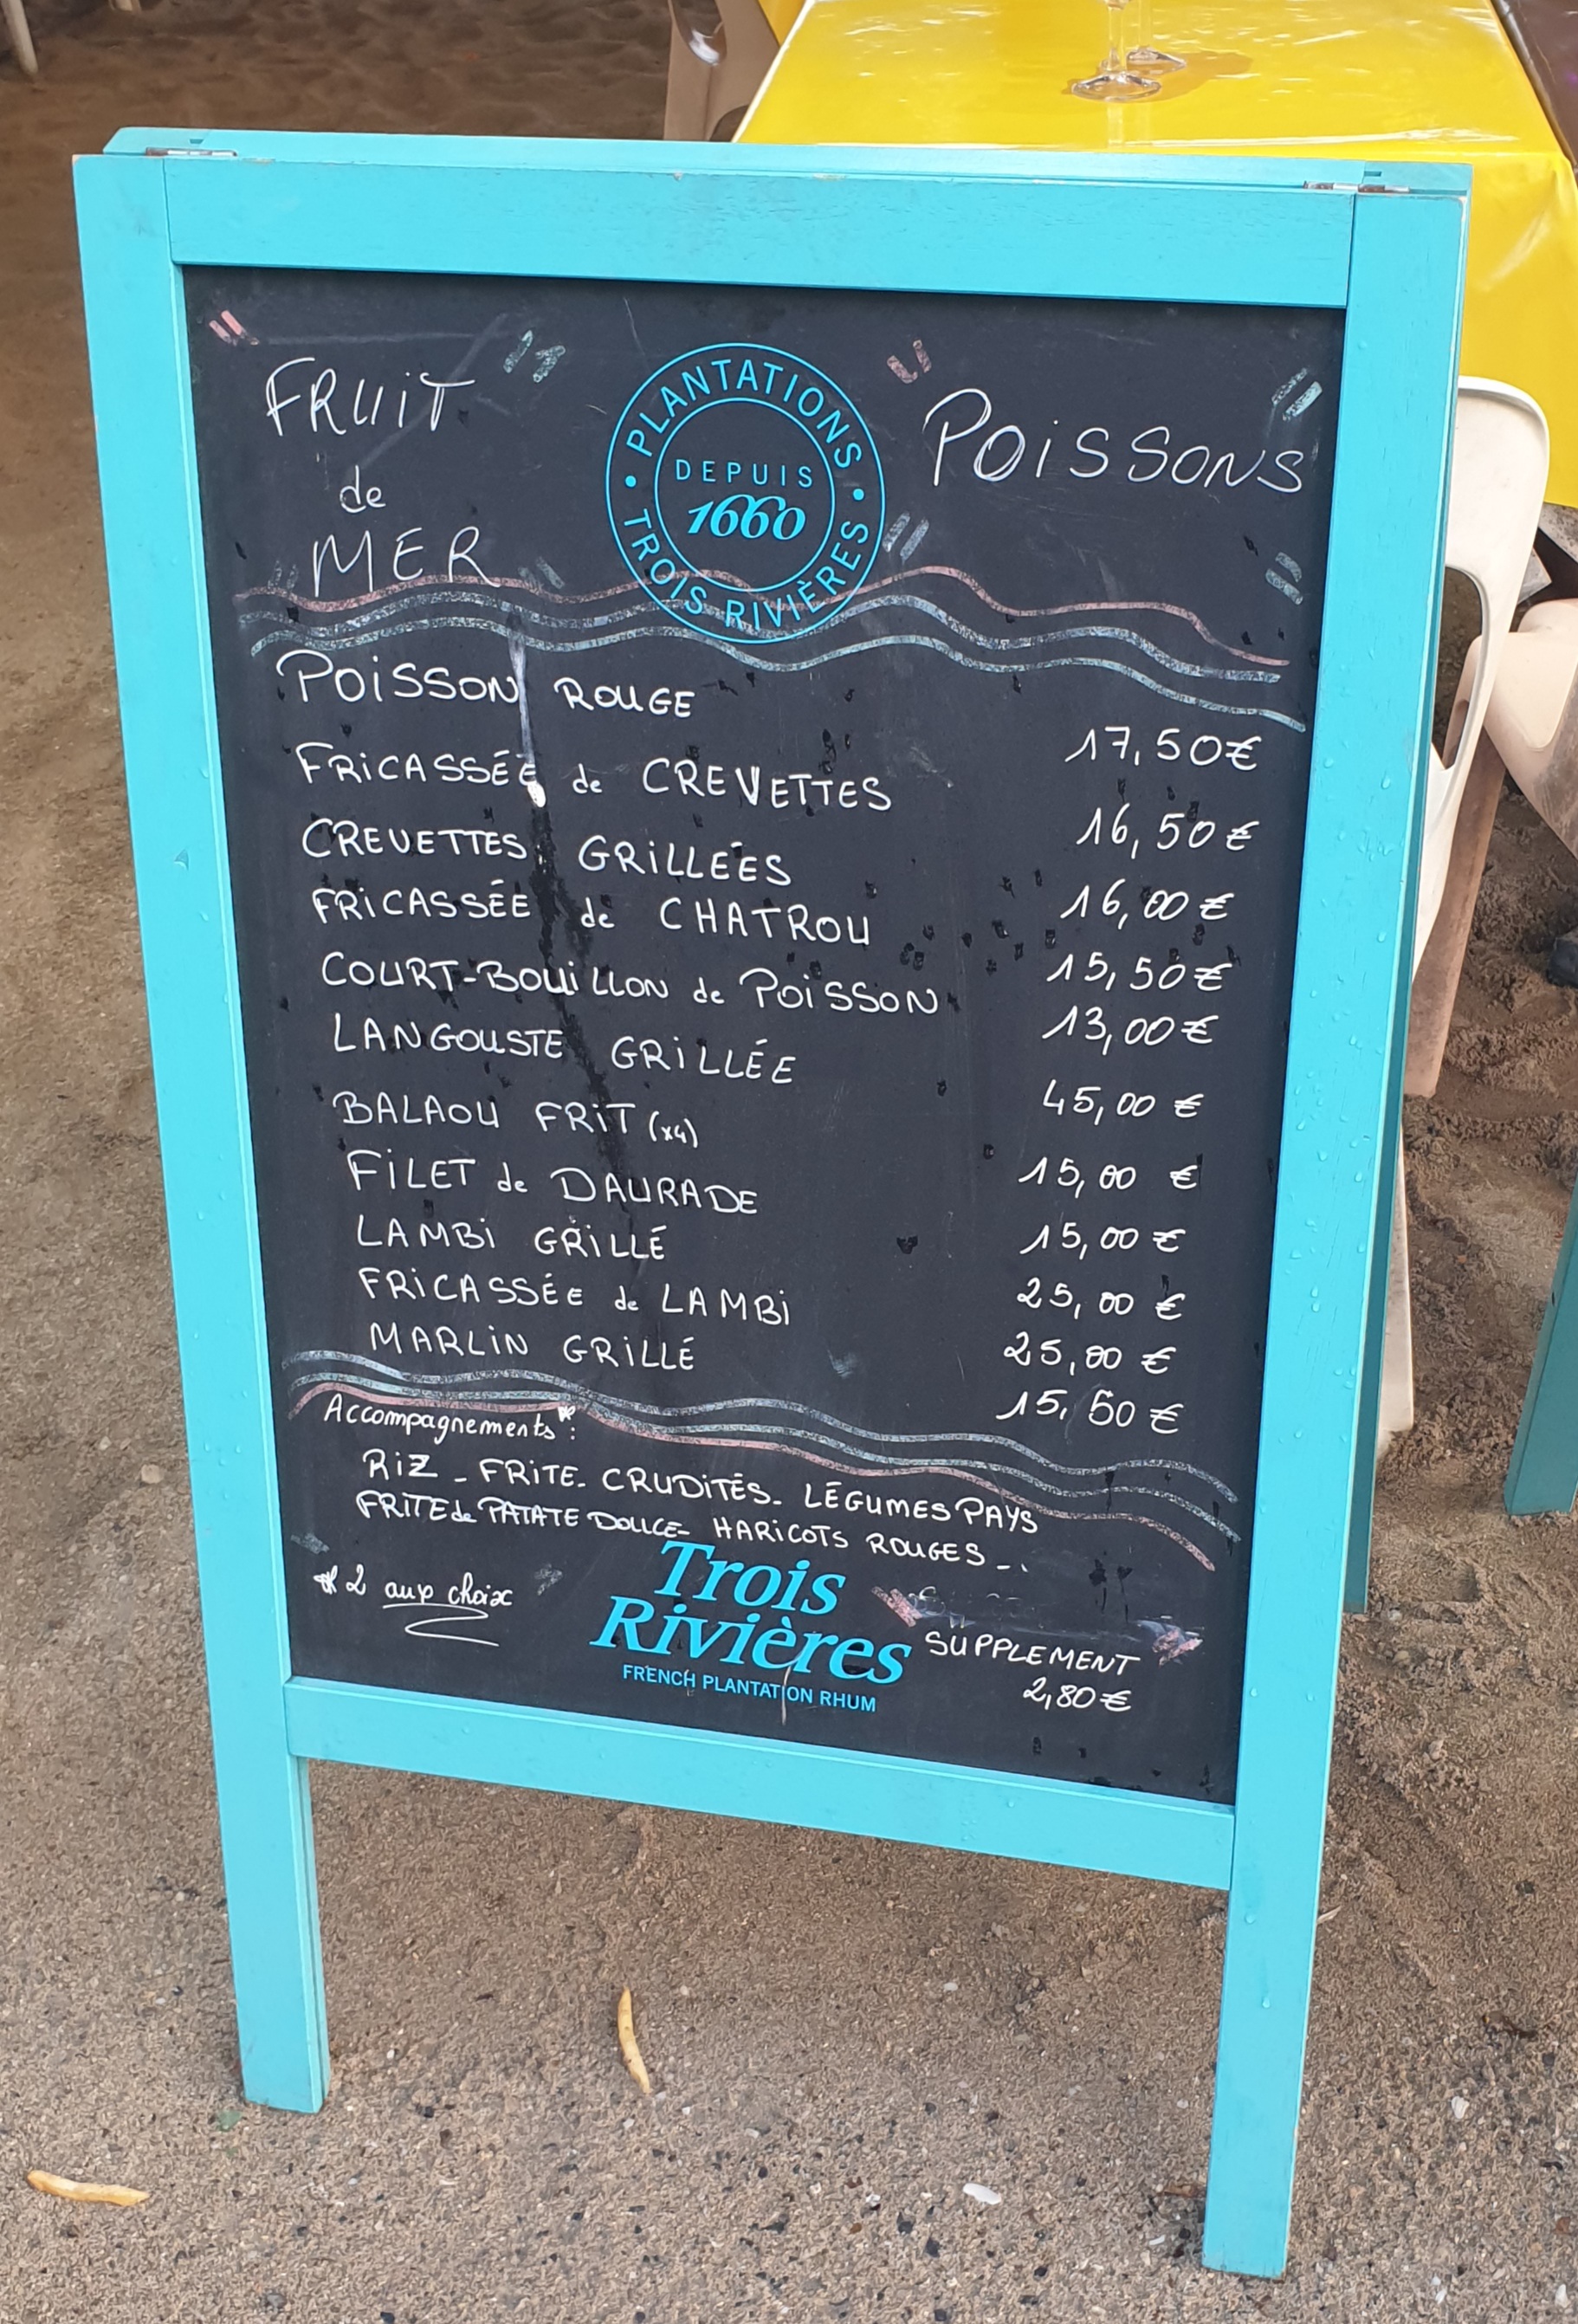 FRUIT
de
MER
PLANTATIONS
DEPUIS
1660
TROIS RIVIÈRES
POISSONS
POISSON ROUGE 17,50€
FRICASSÉE de CREVETTES 16,50€
CREVETTES GRILLÉES 16,00€
FRICASSÉE de CHATROU 15,50€
COURT-BOUILLON de POISSON 13,00€
LANGOUSTE GRILLÉE 45,00 €
BALAOU FRIT (x4) 15,00 €
FILET de DAURADE 15,00 €
LAMBI GRILLÉ 25,00 €
FRICASSÉE de LAMBI 25,00 €
MARLIN GRILLÉ 15,50 €
Accompagnements* :
RIZ - FRITE - CRUDITÉS - LÉGUMES PAYS
FRITE de PATATE DOUCE - HARICOTS ROUGES - ..
* 2 aux choix
Trois
Rivières
FRENCH PLANTATION RHUM
SUPPLEMENT
2,80€